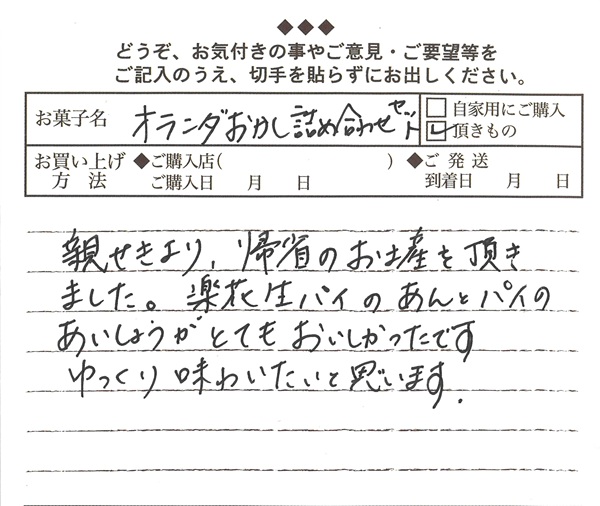 ◆◆◆
どうぞ、お気付きの事やご意見・ご要望等を
ご記入のうえ、切手を貼らずにお出しください。
お菓子名 オランダおかし詰め合わせセット □ 自家用にご購入
☑ 頂きもの
お買い上げ方法 ◆ご購入店( ) ◆ご発送
ご購入日 月 日 到着日 月 日
親せきより、帰省のお土産を頂き
ました。楽花生パイのあんとパイの
あいしょうがとてもおいしかったです
ゆっくり味わいたいと思います.